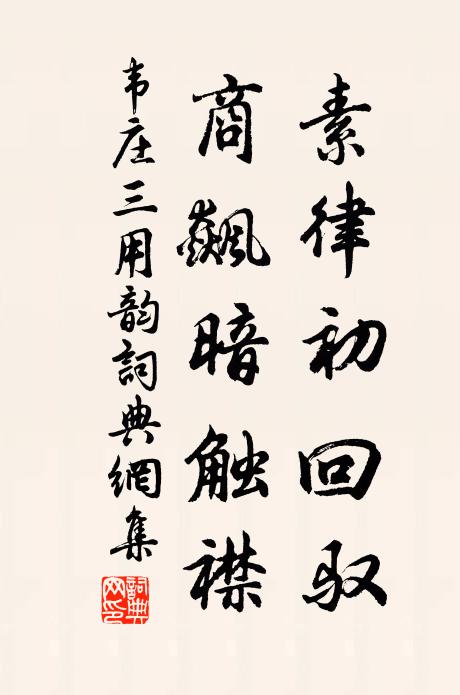 素律初回驭
商飙暗触襟
韦庄三用韵詞典網集
詞典网印